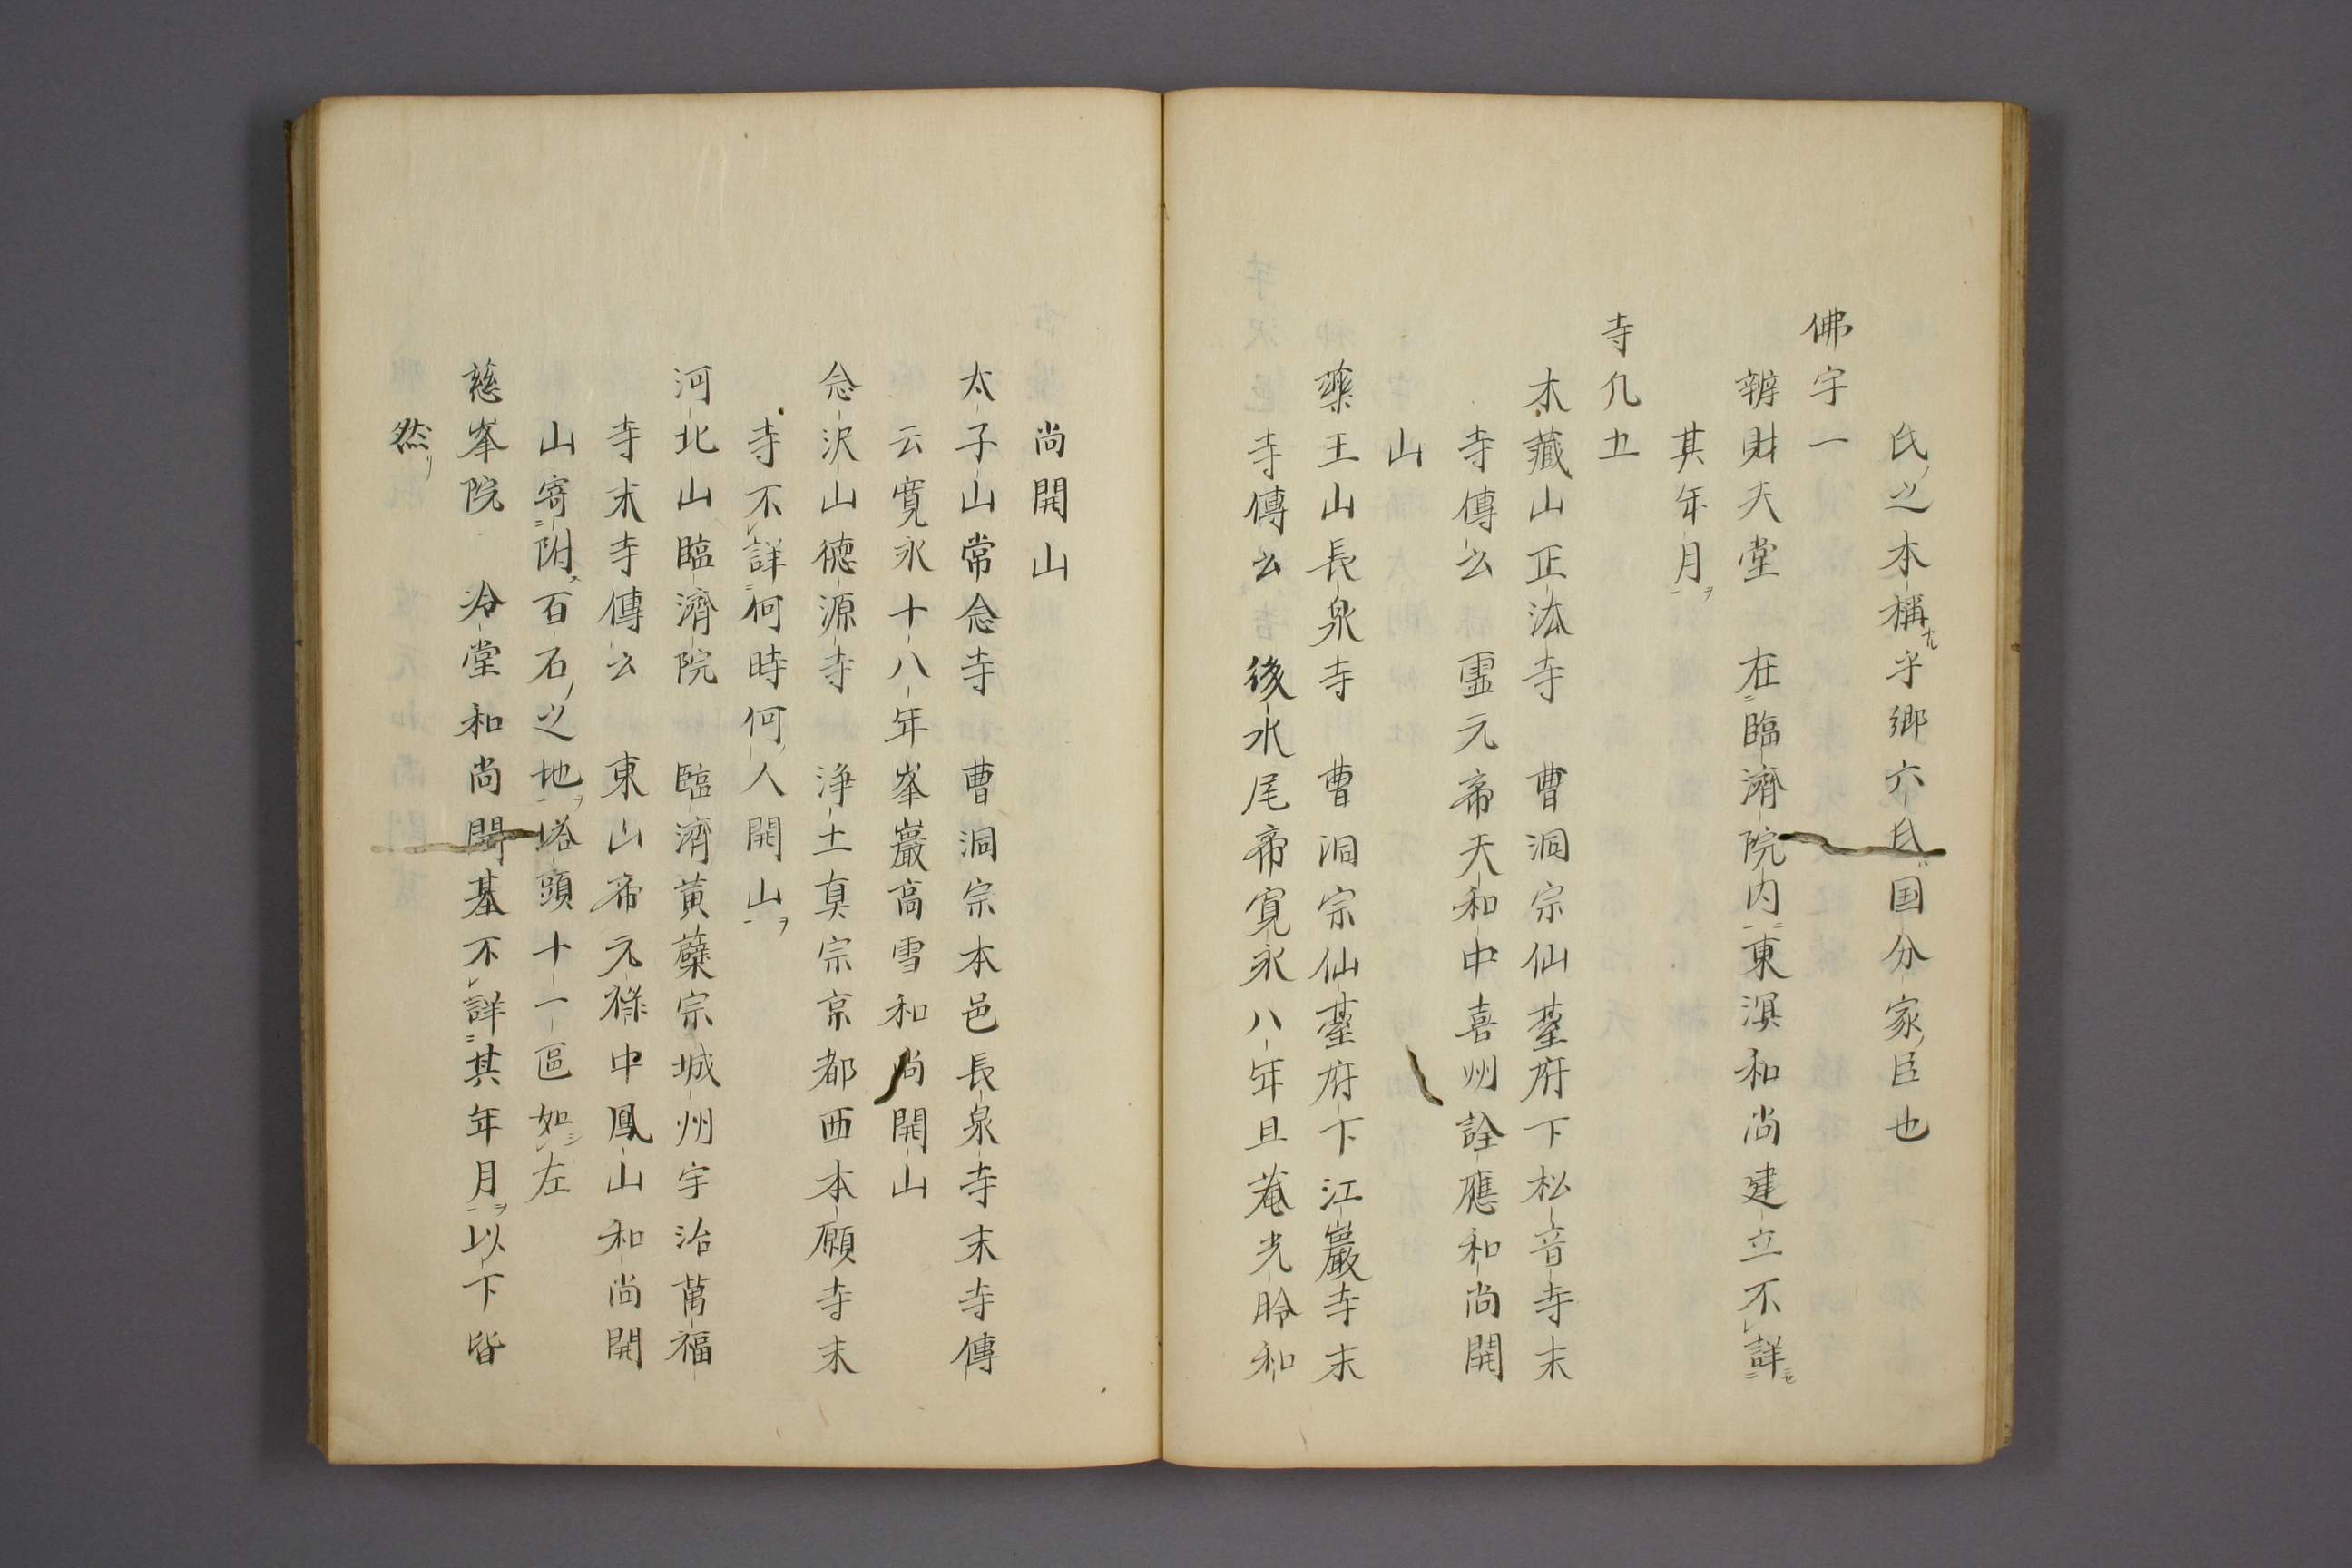 氏ノ之木稱ナル乎郷六氏ハ国分家ノ臣也
佛宇一
辨財天堂　在臨濟院内東溟和尚建立不詳
其年月ヲ
寺凡五
木藏山正法寺　曹洞宗仙臺府下松音寺末
寺傳云霊元帝天和中喜州詮應和尚開
山
藥王山長泉寺　曹洞宗仙臺府下江巖寺末
寺傳云　後水尾帝寛永八年旦菴光肹和
尚開山
太子山常念寺　曹洞宗本邑長泉寺末寺傳
云寛永十八年峯巖高雪和尚開山
念沢山徳源寺　浄土真宗京都西本願寺末
寺不詳何時何人開山ヲ
河北山臨濟院　臨濟黄蘗宗城州宇治萬福
寺末寺傳云　東山帝元禄中鳳山和尚開
山寄附百石ノ之地ヲ塔頭十一區如左
慈峯院　冷堂和尚開基不詳其年月ヲ以下皆
然リ